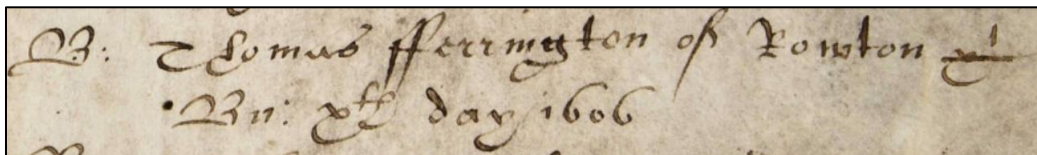 B: Thomas fferrington of Rowton
Bu: xth day 1606